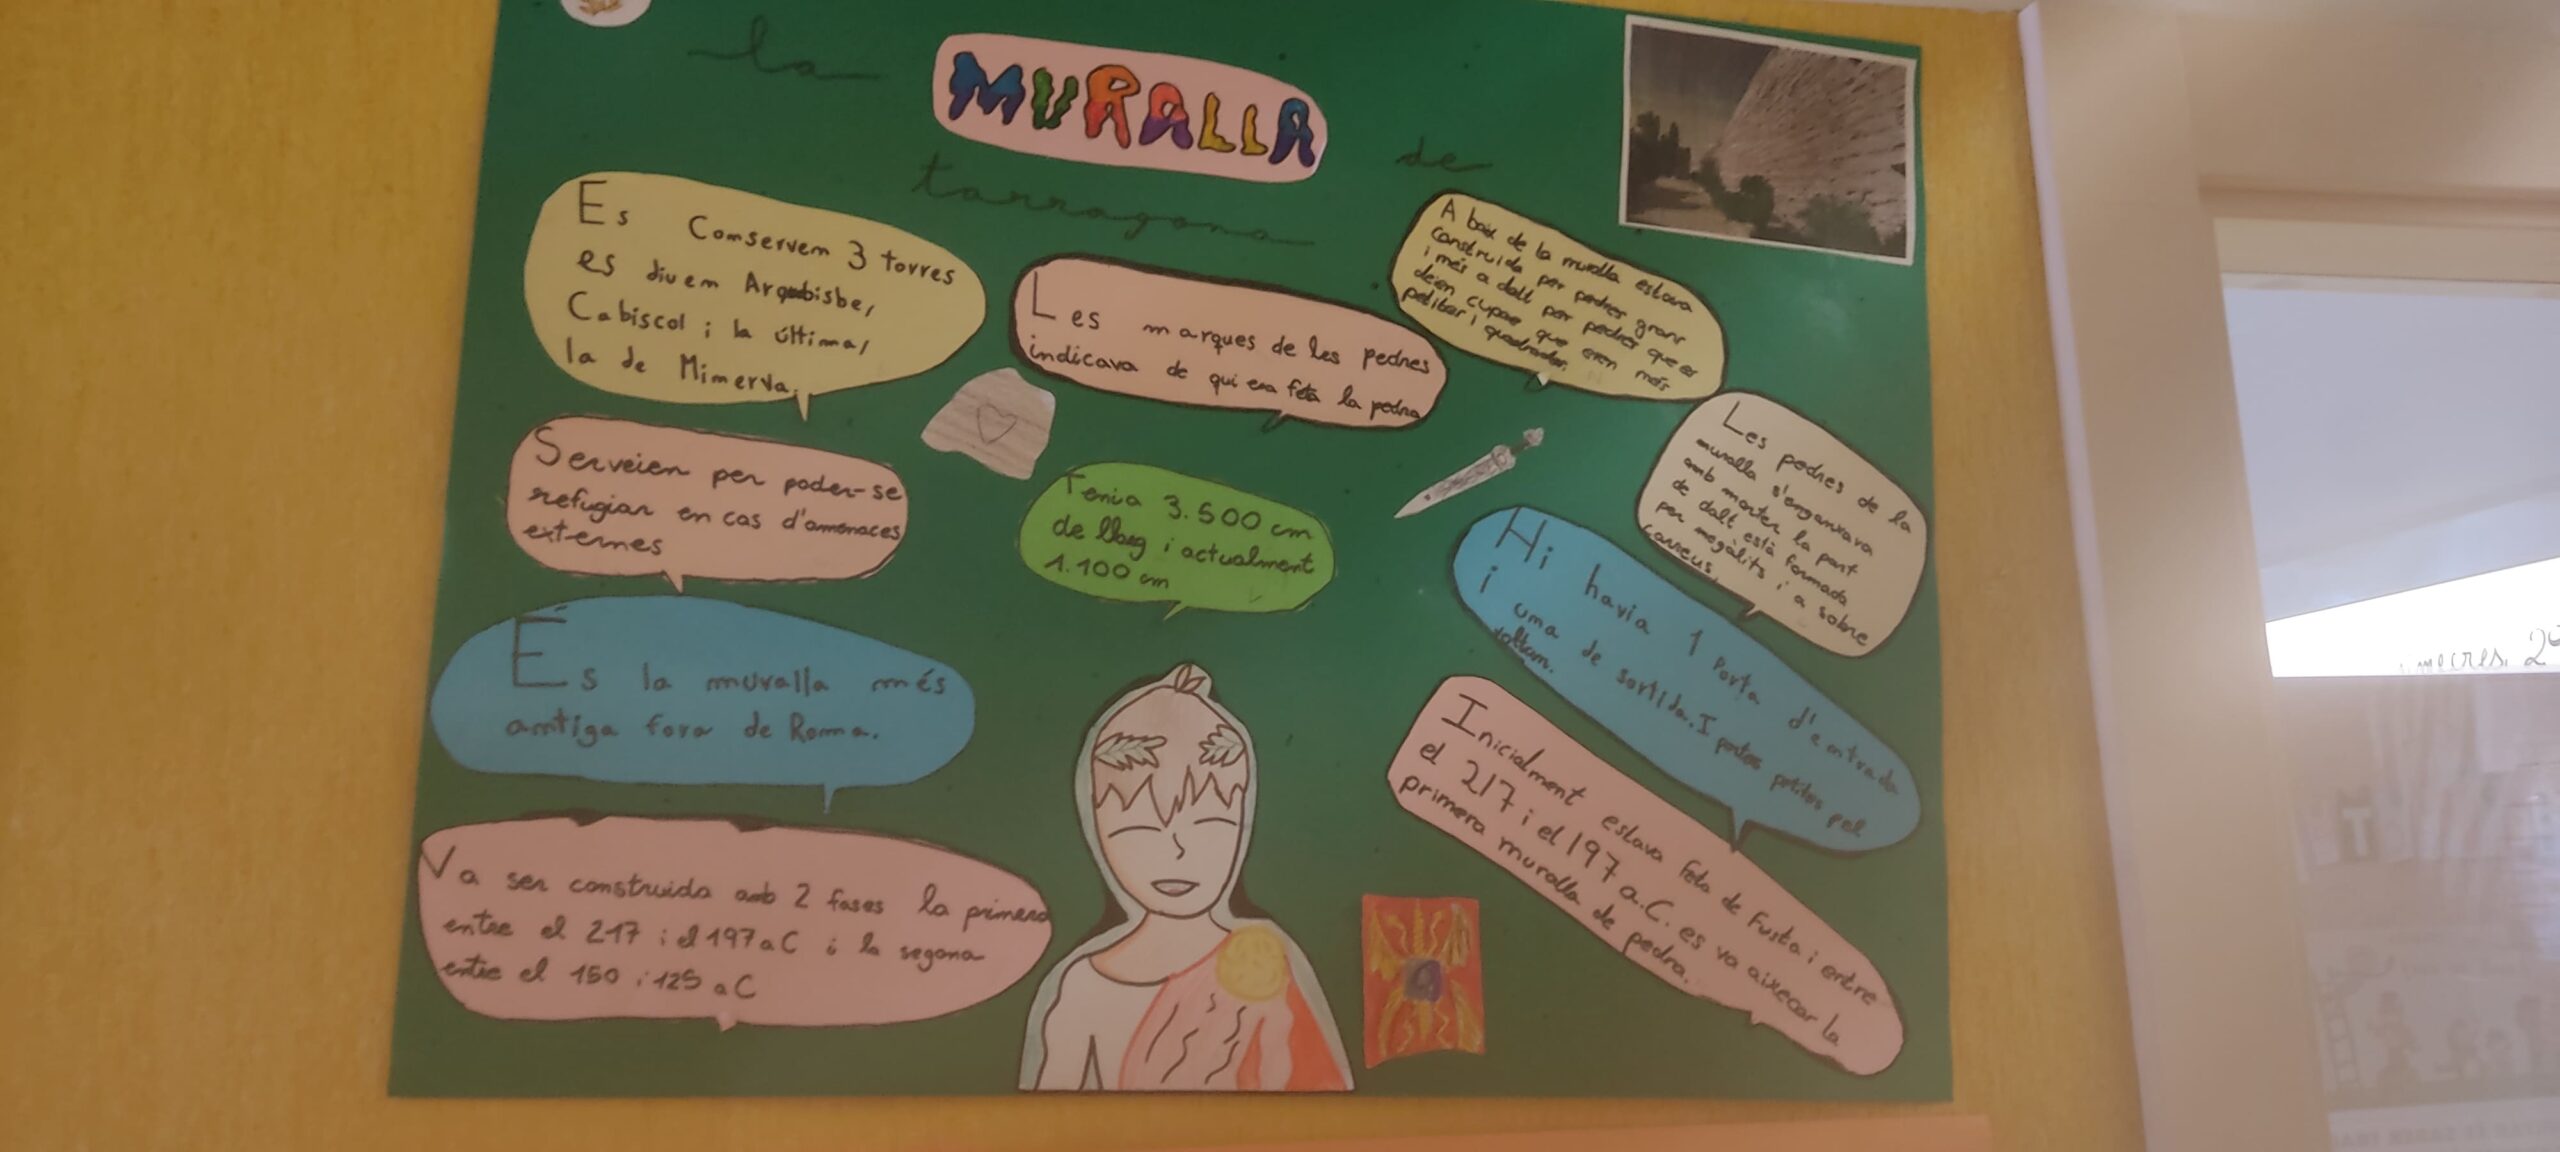 la
MURALLA
de
tarragona
Es Conservem 3 torres
es divem Arqubisbe,
Cabiscol i la última,
la de Minerva.
Les marques de les pedres
indicava de qui era feta la pedra
A baix de la muralla estava
construida per pedres grans
i més a dalt per pedres que es
deien cupae que eren més
petites i quadrades.
Serveien per poder-se
refugiar en cas d'amenaces
externes
Tenia 3.500 cm
de llarg i actualment
1.100 cm
Les pedres de la
muralla s'enganxava
amb morter la part
de dalt està formada
per megàlits i a sobre
carreus.
És la muralla més
antiga fora de Roma.
Hi havia 1 porta d'entrada
i una de sortida. I portes petites pel
voltam.
Va ser construida amb 2 fases la primera
entre el 217 i el 197 a C i la segona
entre el 150 i 125 a C
Inicialment estava feta de fusta i entre
el 217 i el 197 a.C. es va aixecar la
primera muralla de pedra.